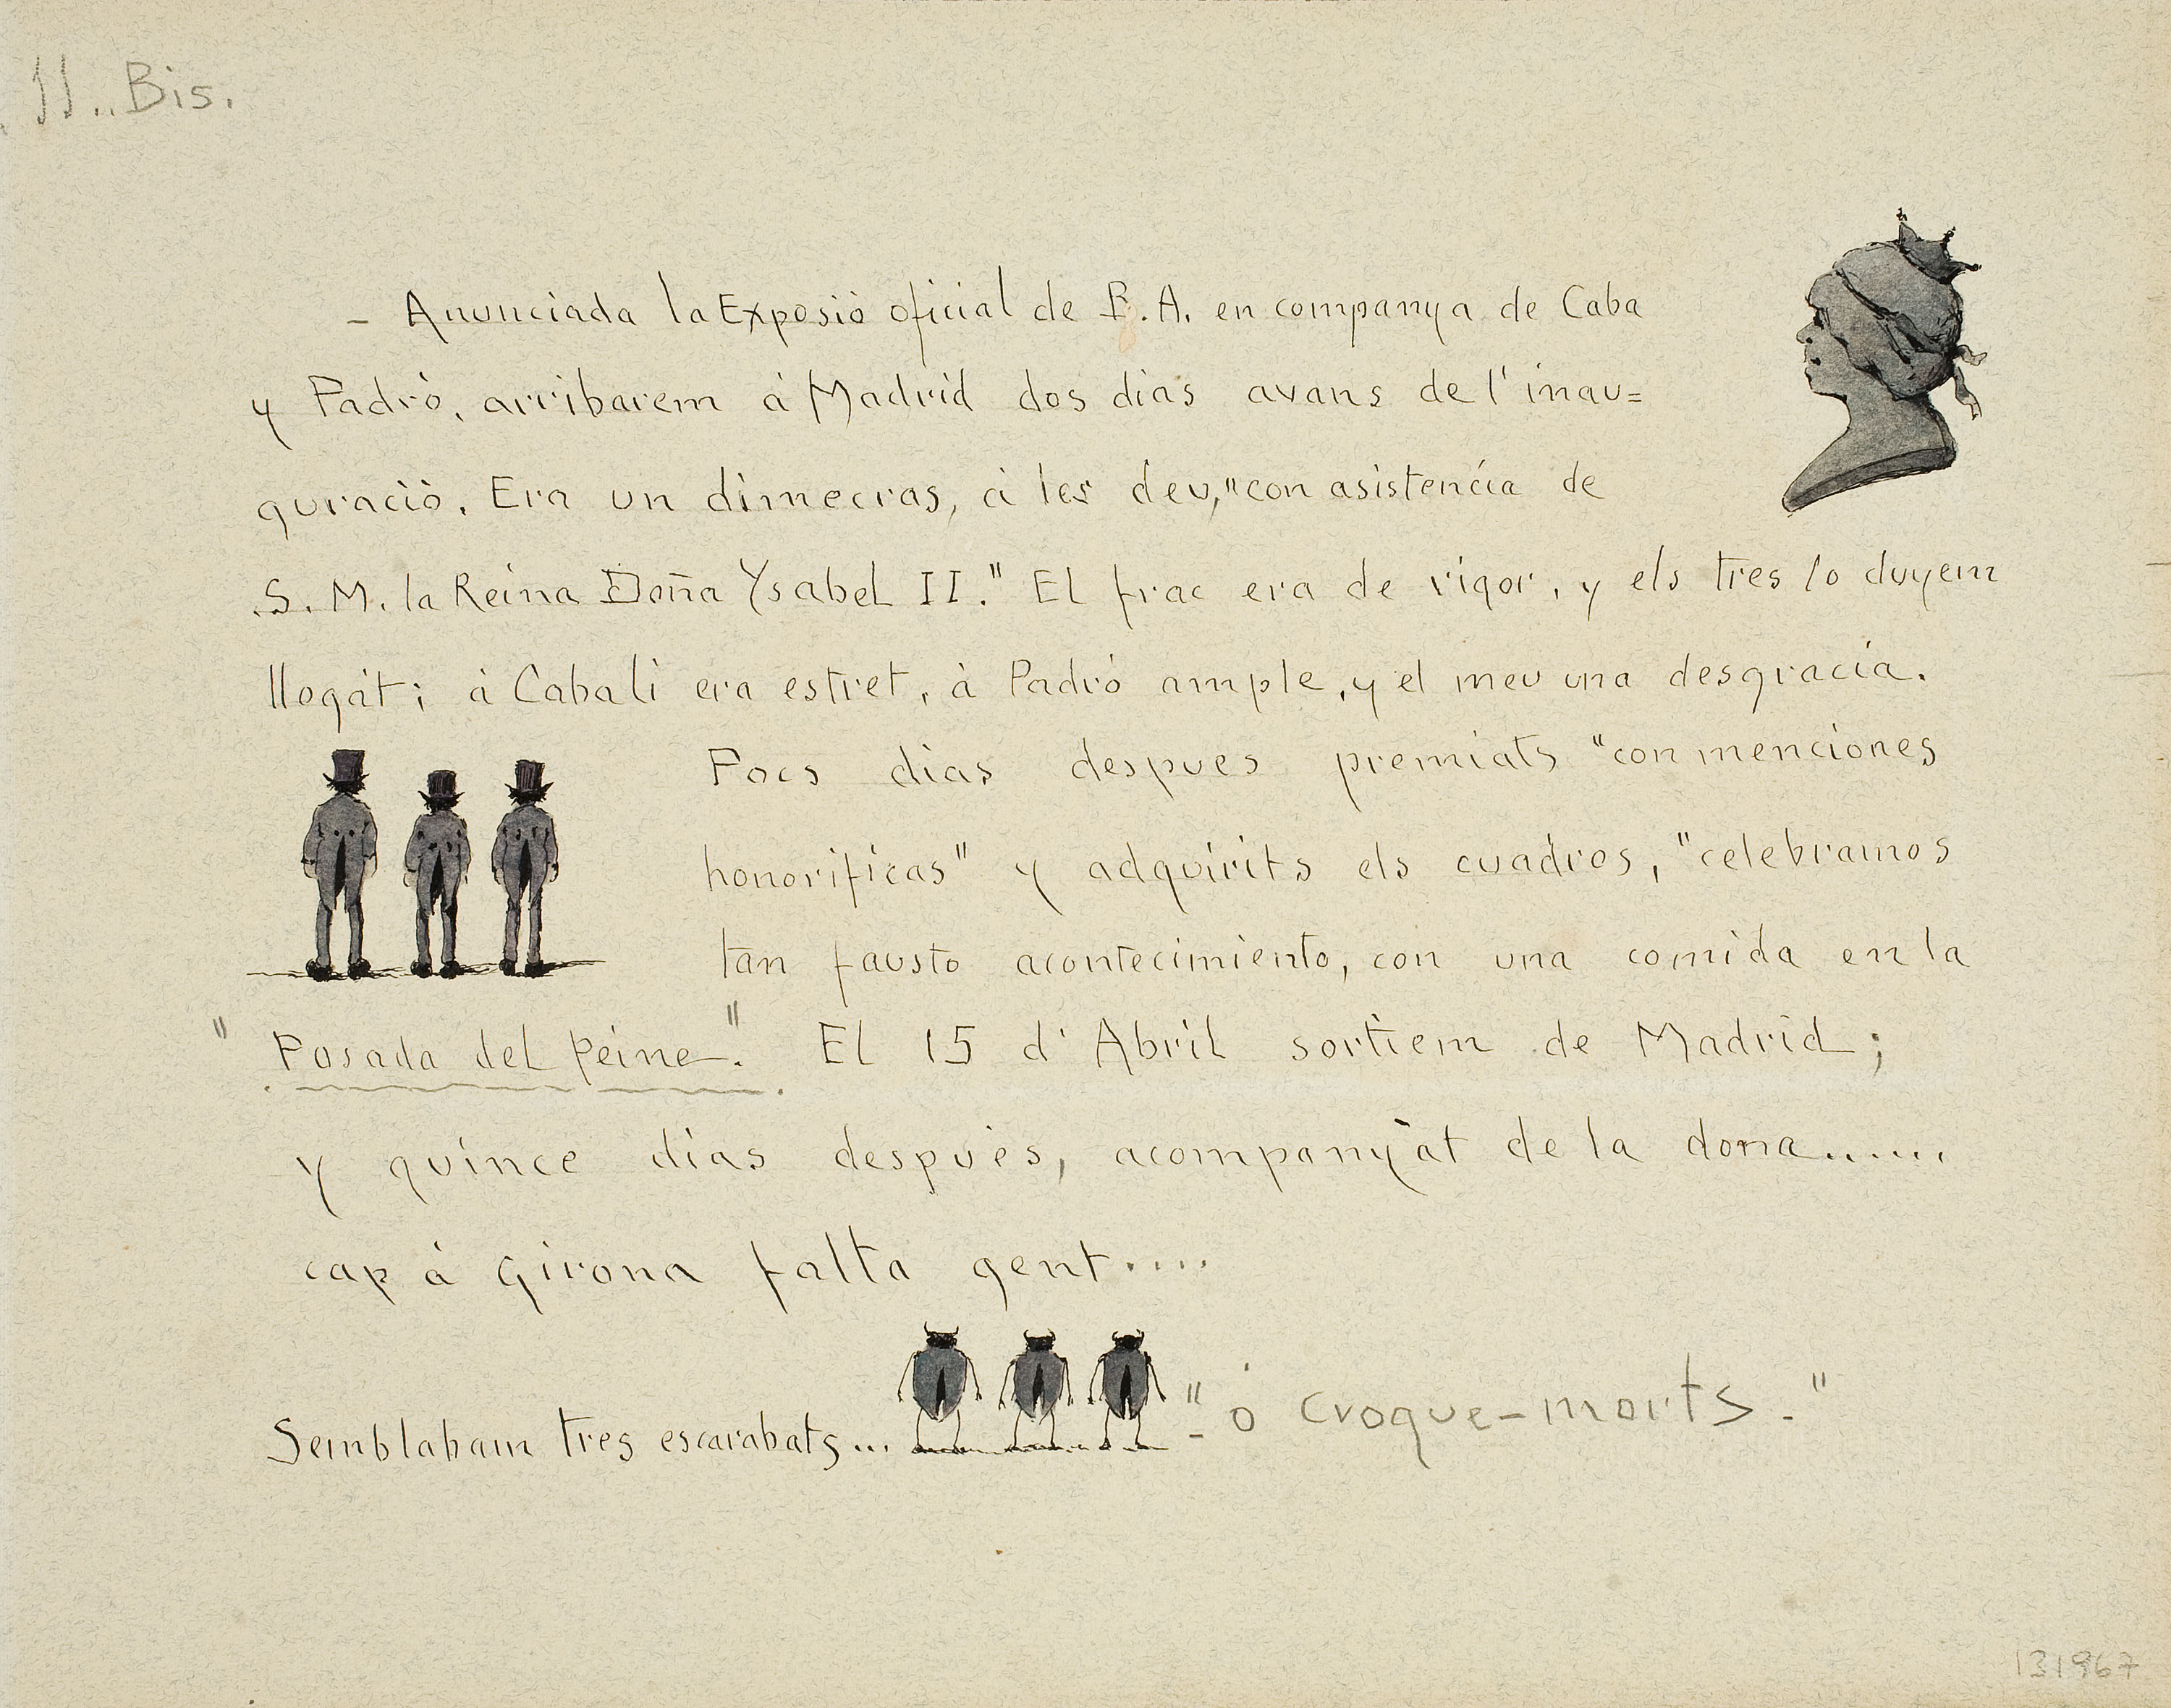 11.. Bis.
- Anunciada la Exposió oficial de B.A. en companya de Caba
y Padró, arribarem á Madrid dos dias avans de l'inau=
guració. Era un dimecras, á les deu, "con asistencia de
S. M. la Reina Doña Ysabel II." El frac era de rigor, y els tres lo duyem
llogát; á Cabali era estret, á Padró ample, y el meu una desgracia.
Pocs dias despues premiats "con menciones
honorificas" y adquirits els cuadros, "celebramos
tan fausto acontecimiento, con una comida en la
"Posada del Peine." El 15 d'Abril sortiem de Madrid;
y quince dias despues, acompanyat de la dona......
cap á Girona falta gent....
Semblabam tres escarabats... "- ó croque-morts."
131967